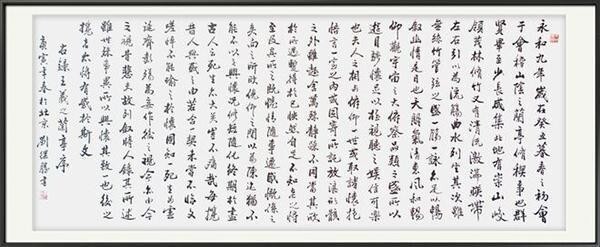 永和九年歲在癸丑暮春之初會
于會稽山陰之蘭亭脩稧事也群
賢畢至少長咸集此地有崇山峻
領茂林脩竹又有清流激湍暎帶
左右引以為流觴曲水列坐其次雖
無絲竹管弦之盛一觴一詠亦足以暢
敘幽情是日也天朗氣清惠風和暢
仰觀宇宙之大俯察品類之盛所以
遊目騁懷足以極視聽之娛信可樂
也夫人之相與俯仰一世或取諸懷抱
悟言一室之內或因寄所託放浪形骸
之外雖趣舍萬殊靜躁不同當其欣
於所遇暫得於己怏然自足不知老之將
至及其所之既惓情隨事遷感慨係之
矣向之所欣俛仰之間以為陳迹猶不
能不以之興懷況脩短隨化終期於盡
古人云死生亦大矣豈不痛哉每攬
昔人興感之由若合一契未嘗不臨文
嗟悼不能喻之於懷固知一死生為虛
誕齊彭殤為妄作後之視今亦由今
之視昔悲夫故列敘時人錄其所述
雖世殊事異所以興懷其致一也後之
攬者亦將有感於斯文
右錄王羲之蘭亭序
庚寅年春於北京劉